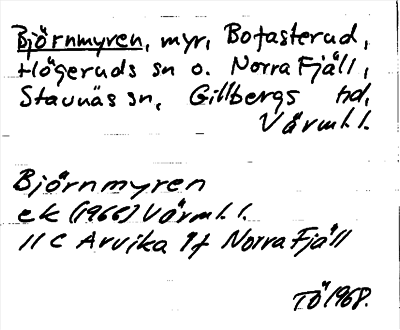 Björnmyren, myr, Botasterud,
Högeruds sn o. Norra Fjäll,
Stavnäs sn, Gillbergs hd,
Värml. l.
Björnmyren
ek (1966) Värml. l.
11 C Arvika 9f Norra Fjäll
TÖ 1968.